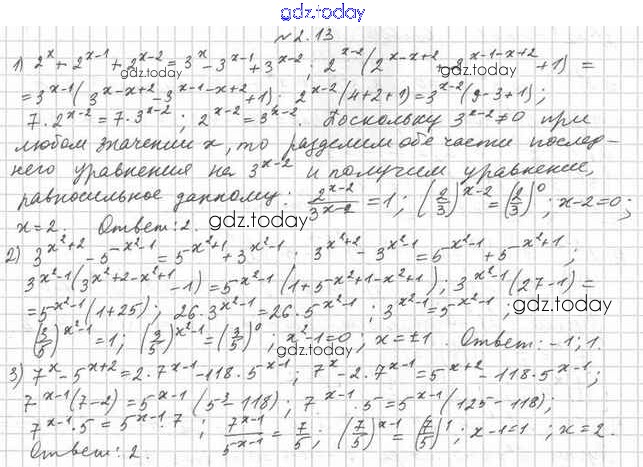 gdz.today
№2.13
1) 2^x + 2^{x-1} + 2^{x-2} = 3^x - 3^{x-1} + 3^{x-2}; 2^{x-2}(2^{x-x+2} + 2^{x-1-x+2} + 1) =
gdz.today
gdz.today
= 3^{x-1}(3^{x-x+2} - 3^{x-1-x+2} + 1); 2^{x-2}(4+2+1) = 3^{x-2}(9-3+1);
7·2^{x-2} = 7·3^{x-2}; 2^{x-2} = 3^{x-2}. Поскольку 3^{x-2} ≠ 0 при
любом значении x, то разделим обе части послед-
него уравнения на 3^{x-2} и получим уравнение,
равносильное данному: 2^{x-2}/3^{x-2} = 1; (2/3)^{x-2} = (2/3)^0; x-2=0;
x=2. Ответ: 2.
gdz.today
2) 3^{x²+2} - 5^{x²-1} = 5^{x²+1} + 3^{x²-1}; 3^{x²+2} - 3^{x²-1} = 5^{x²-1} + 5^{x²+1};
3^{x²-1}(3^{x²+2-x²+1} - 1) = 5^{x²-1}(1 + 5^{x²+1-x²+1}); 3^{x²-1}(27-1) =
= 5^{x²-1}(1+25); 26·3^{x²-1} = 26·5^{x²-1}; 3^{x²-1} = 5^{x²-1};
gdz.today
(3/5)^{x²-1} = 1; (3/5)^{x²-1} = (3/5)^0; x²-1=0; x=±1. Ответ: -1; 1.
gdz.today
3) 7^x - 5^{x+2} = 2·7^{x-1} - 118·5^{x-1}; 7^x - 2·7^{x-1} = 5^{x+2} - 118·5^{x-1};
7^{x-1}(7-2) = 5^{x-1}(5^3 - 118); 7^{x-1}·5 = 5^{x-1}(125-118);
7^{x-1}·5 = 5^{x-1}·7; 7^{x-1}/5^{x-1} = 7/5; (7/5)^{x-1} = (7/5)^1; x-1=1; x=2.
Ответ: 2.
gdz.today